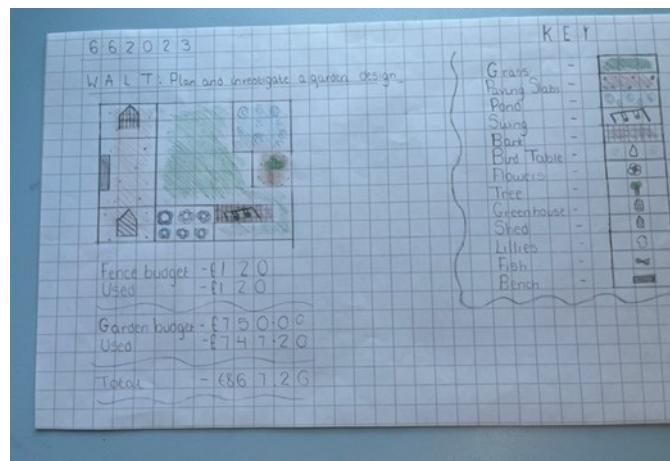 6 6 2 0 2 3
W A L T : Plan and investigate a garden design
Fence budget - £1 2 0
Used - £1 2 0
Garden budget - £7 5 0.0 0
Used - £7 4 7.2 0
Total - £8 6 7.2 0
K E Y
Grass -
Paving Slabs -
Pond -
Swing -
Bark -
Bird Table -
Flowers -
Tree -
Greenhouse -
Shed -
Lillies -
Fish -
Bench -